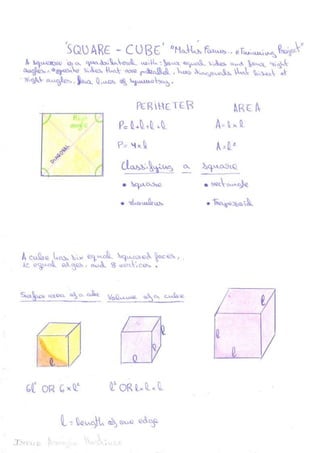 'SQUARE - CUBE' "Maths Focus. eTwinning Project"
A square is a quadrilateral with: four equal sides and four right
angles. opposite sides that are parallel, two diagonals that bisect at
right angles, four lines of symmetry.
PERIMETER
AREA
Right
angle
DIAGONAL
P= l+l+l+l
A= l x l
P= 4 x l
A= l²
Classifying a square
• square
• rectangle
• rhombus
• Trapezoid
A cube has six equal squared faces,
12 equal edges, and 8 vertices.
Surface area of a cube
Volume of a cube
l
l
l
l
l
l
l
6l² OR 6 x l²
l³ OR l x l x l
l = length of one edge